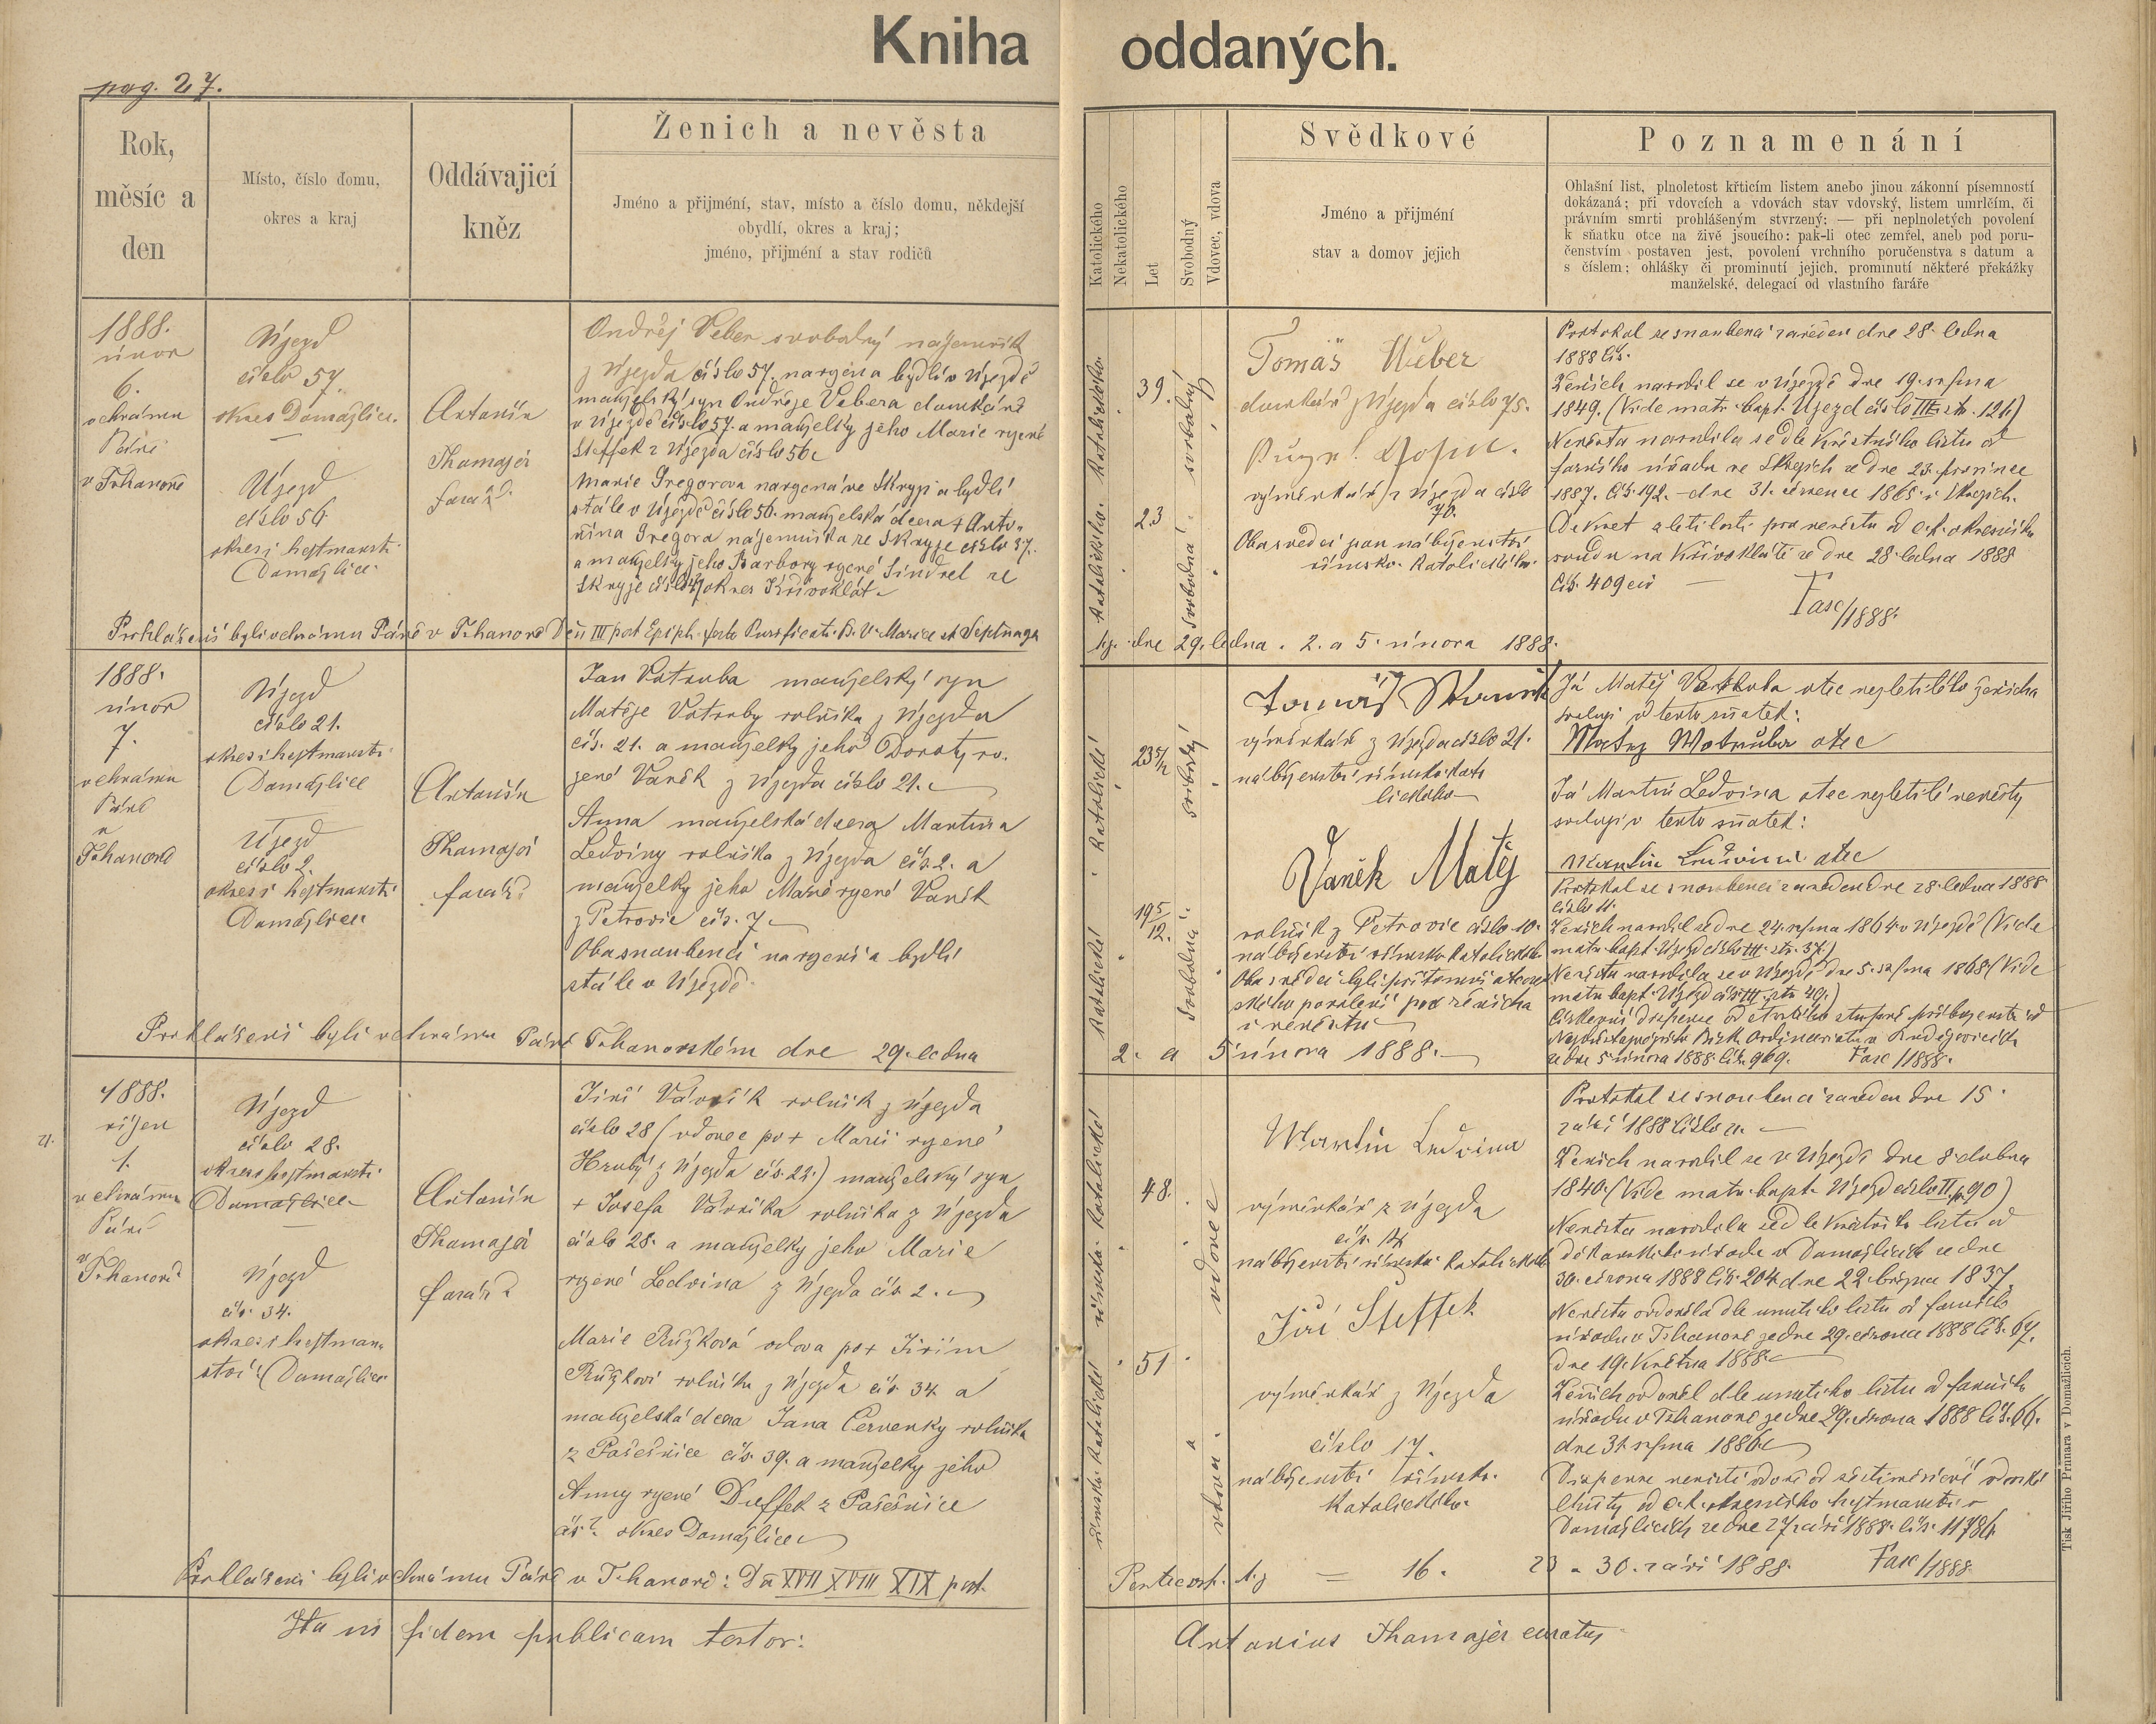 Kniha oddaných.
pag. 27.
Rok, měsíc a den
Místo, číslo domu, okres a kraj
Oddávajicí kněz
Ženich a nevěsta
Jméno a přijmění, stav, místo a číslo domu, někdejší
obydlí, okres a kraj;
jméno, přijmění a stav rodičů
Katolického
Nekatolického
Let
Svobodný
Vdovec, vdova
Svědkové
Jméno a přijmění
stav a domov jejich
Poznamenání
Ohlašní list, plnoletost křticím listem anebo jinou zákonní písemností
dokázaná; při vdovcích a vdovách stav vdovský, listem umrlčím, či
právním smrti prohlášeným stvrzený; — při neplnoletých povolení
k sňatku otce na živě jsoucího: pak-li otec zemřel, aneb pod poru-
čenstvím postaven jest, povolení vrchního poručenstva s datum a
s číslem; ohlášky či prominutí jejich, prominutí některé překážky
manželské, delegací od vlastního faráře
1888.
únor
6.
v chrámu
Páně
v Thanově
Újezd
číslo 57.
okres Domažlice.
Újezd
číslo 56
okres i hejtmanství
Domažlice
Antonín
Thamajer
farář
Ondřej Veber svobodný nájemník
z Újezda číslo 57. narozen a bydlí v Újezdě
manželský syn Ondřeje Vebera domkáře
v Újezdě číslo 57. a manželky jeho Marie rozené
Steffek z Újezda číslo 56.
Marie Gregorova narozená ve Skryji a bydlí
stále v Újezdě číslo 56. manželská dcera + Anto-
nína Gregora nájemníka ze Skryje číslo 37.
a manželky jeho Barbory rozené Šindel ze
Skryje číslo okres Křivoklát.
Prohlášeni byli v chrámu Páně v Thanově Dni III post Epiph. festo Purificati. B. V. Mariae et Septuage
tj. dne 29. ledna. 2. a 5. února 1888.
39.
23
Katolického. Katolického.
svobodný
svobodná
Tomáš Weber
domkář z Újezda číslo 75.
výměnkář z Újezda číslo
70.
Oba svědci jsou náboženství
římsko. Katolického.
Protokol se snoubenci zaveden dne 28. ledna
1888 čís.
Ženich narodil se v Újezdě dne 19. srpna
1849. (Vide matr. bapt. Újezd číslo III. str. 121)
Nevěsta narodila se dle křestního listu od
farního úřadu ve Skryjích ze dne 23. prosince
1887. čís. 192. – dne 31. července 1865 v Skryjích.
Dekret zletilosti pro nevěstu od c. k. okresního
soudu na Křivoklátě ze dne 28. ledna 1888
čís. 409 civ —
Fasc/1888.
1888.
únor
7.
v chrámu
Páně
v
Thanově
Újezd
číslo 21.
okres i hejtmanství
Domažlice
Újezd
číslo 2.
okres i hejtmanství
Domažlice
Antonín
Thamajer
farář
Jan Votruba manželský syn
Matěje Votruby rolníka z Újezda
čís. 21. a manželky jeho Doroty ro-
zené Vaněk z Újezda číslo 21.
Anna manželská dcera Martina
Ledviny rolníka z Újezda čís. 2. a
manželky jeho Marie rozené Vaněk
z Petrovic čís. 7
Oba snoubenci narozeni a bydlí
stále v Újezdě.
Prohlášeni byli v chrámu Páně Thanovském dne 29. ledna
2. a 5 února 1888.
Katolické
Katolické
23 5/12
19 5/12.
svobodný
svobodná
Tomáš
výměnkář z Újezda číslo 21.
náboženství římsko. kato
lického
Vaněk Matěj
rolník z Petrovic číslo 10.
náboženství římsko Katolického
Oba svědci byli přítomni otcov
ského povolení pro ženicha
i nevěstu
Já Matěj Votruba otec nezletilého ženicha
svoluji v tento sňatek:
Matěj Wotruba otec
Já Martin Ledvina otec nezletilé nevěsty
svoluji v tento sňatek:
Martin Ledvina otec
Protokol se snoubenci zaveden dne 28. ledna 1888
číslo
Ženich narodil se dne 24. srpna 1864 v Újezdě (Vide
matr. bapt. Újezd číslo III. str. 37.)
Nevěsta narodila se v Újezdě dne 5. srpna 1868 (Vide
matr. bapt. Újezd čís. III. str. 49.)
ze dne 5 února 1888. čís. 969. Fasc /1888.
1888.
říjen
1.
v chrámu
Páně
v
Thanově
Újezd
číslo 28.
okres i hejtmanství
Domažlice
Újezd
čís. 34.
okres i hejtman-
ství Domažlice
Antonín
Thamajer
farář
Jiří Vávřík rolník z Újezda
číslo 28 (vdovec po + Marii rozené
Hrubý z Újezda čís. 22.) manželský syn
+ Josefa Vávříka rolníka z Újezda
číslo 28. a manželky jeho Marie
rozené Ledvina z Újezda čís 2.
Marie Růžková vdova po + Jiřím
Růžkovi rolníku z Újezda čís. 34. a
manželská dcera Jana Červenky rolníka
z Pašešnice čís. 39. a manželky jeho
Anny rozené Duffek z Pašešnice
čís ? okres Domažlice
Prohlášeni byli v chrámu Páně v Thanově: Da XVII XVIII XIX post.
Pentecost. t. j = 16. 23 a 30. září 1888. Fasc/1888
římsko. Katolické
římsko. Katolické
48.
51
vdovec
vdova.
Martin Ledvina
výměnkář z Újezda
náboženství římsko. Katolického
Jiří Steffek
výměnkář z Újezda
číslo 17.
náboženství římsko.
Katolického.
Protokol se snoubenci zaveden dne 15.
září 1888 číslo
Ženich narodil se v Újezdě dne 8. dubna
1840. (Vide matr. bapt. Újezd číslo II. p. 90)
Nevěsta narodila se dle křestního listu od
děkanského úřadu v Domažlicích ze dne
30. června 1888 čís. 204 dne 22. března 1837.
Nevěsta ovdověla dle úmrtního listu od farního
úřadu v Thanově ze dne 29. června 1888 čís. 67.
dne 19. května 1888.
Ženich ovdověl dle úmrtního listu od farního
úřadu v Thanově ze dne 29. června 1888 čís. 66.
dne 31. srpna 1886.
Dispense nevěstě vdově od šestiměsíční vdovské
lhůty od c. k. okresního hejtmanství v
Domažlicích ze dne 27 září 1888. čís. 11786.
Ita in fidem publicam testor:
Antonius Thamajer curatus
Tisk Jiřího Prunara v Domažlicích.